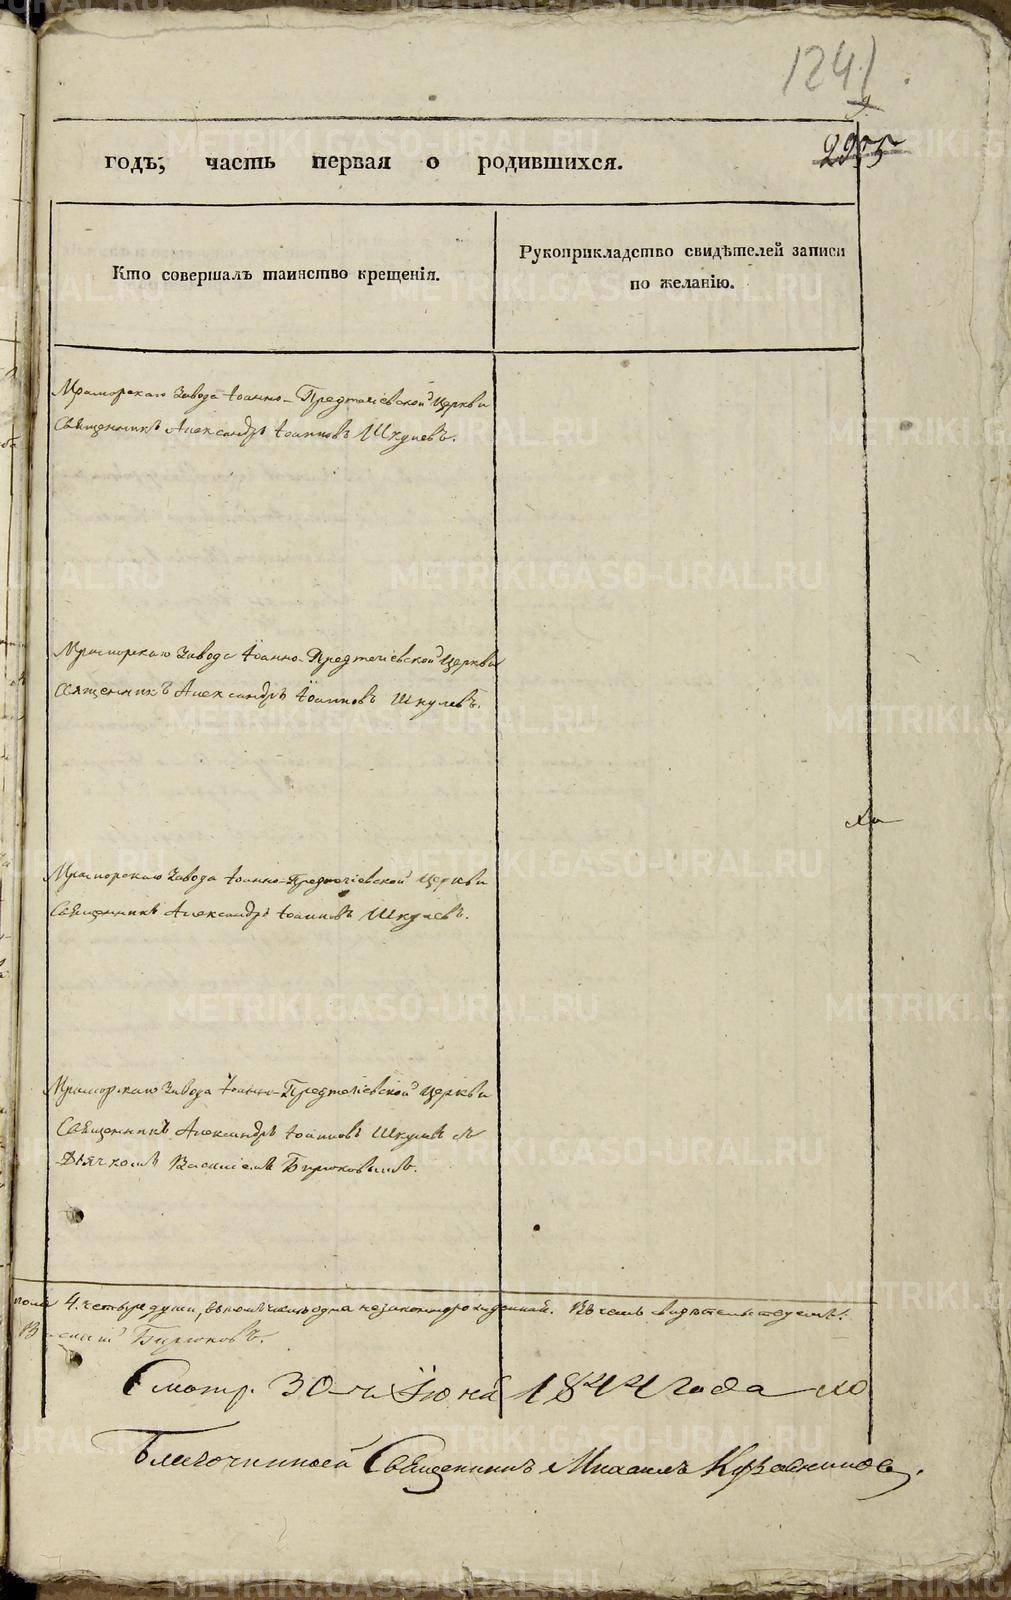 1241
годъ, часть первая о родившихся.
Кто совершалъ таинство крещенія.
Рукоприкладство свидѣтелей записи
по желанію.
Мраморскаго Завода Іоанно-Предтечіевской Церкви
Священникъ Александръ Іоанновъ Шкулевъ.
Мраморскаго Завода Іоанно-Предтечіевской Церкви
Священникъ Александръ Іоанновъ Шкулевъ.
Мраморскаго Завода Іоанно-Предтечіевской Церкви
Священникъ Александръ Іоанновъ Шкулевъ.
Мраморскаго Завода Іоанно-Предтечіевской Церкви
Священникъ Александръ Іоанновъ Шкулевъ съ
Дьячкомъ Василіемъ Бирюковымъ.
пола 4. четыре души, въ томъ числѣ одна незаконнорожденная. Въ чемъ свидѣтельствуемъ:
Василій Бирюковъ.
Смотр. 30-го Іюня 1844 года
Благочинной Священникъ Михаилъ
METRIKI.GASO-URAL.RU